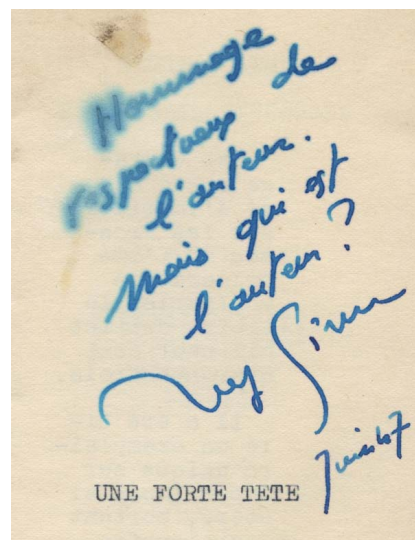 Hommage
respectueux de
l'auteur.
Mais qui est
l'auteur?
UNE FORTE TETE